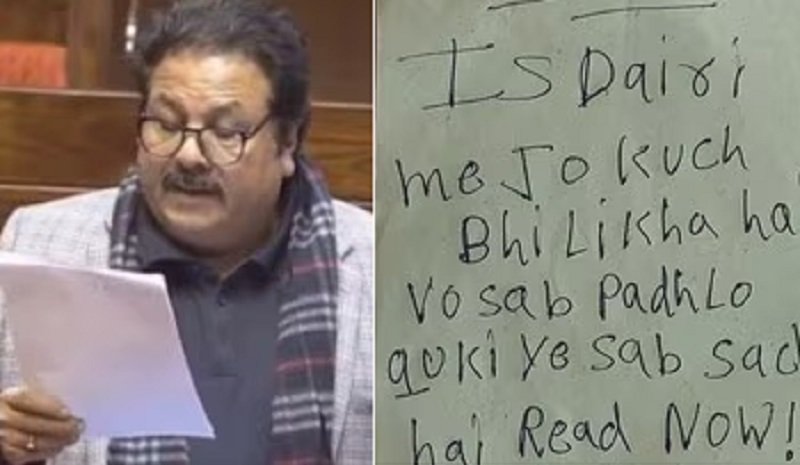 Is Dairi
me Jo Kuch
Bhi Likha ha
vo sab Padh Lo
quki ye sab sach
hai Read NOW!